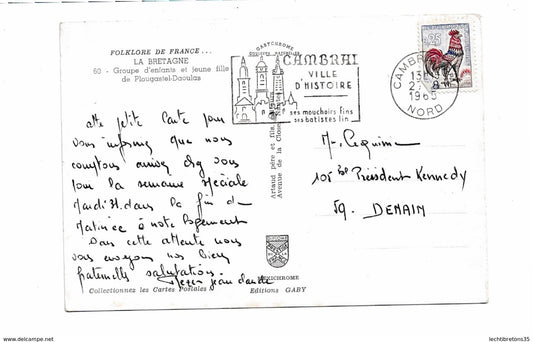 FOLKLORE DE FRANCE...
LA BRETAGNE
60 - Groupe d'enfants et jeune fille
de Plougastel-Daoulas
CAMBRAI
VILLE
D'HISTOIRE
ses mouchoirs fins
ses batistes lin
CAMBRAI
13
2
1965
NORD
0,25
Cette petite Carte pour
vous informez que nous
comptons arrivez chez vous
pour la semaine spéciale
Mardi 31. dans la fin de
Matinée à notre logement
Dans cette attente nous
vous envoyons nos biens
fraternelles salutations.
jean claude
Mr. Cequim
105 Bd Président Kennedy
59. DENAIN
Artaud père et fils, Éditeurs
Avenue de la Close
MEXICHROME
Collectionnez les Cartes Postales
Editions GABY
www.delcampe.net
lechtbretons35